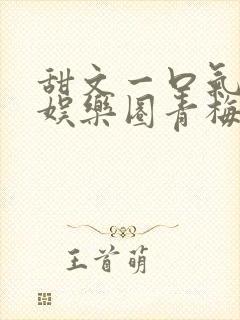 甜文一口氣
娛樂圈青梅
王首萌